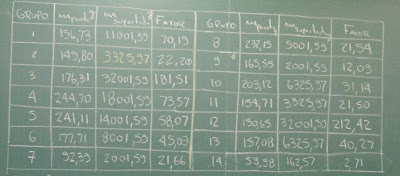 GRUPO m ponto m superfície FATOR GRUPO m ponto m superfície FATOR
1 156,73 11001,59 70,19 8 232,15 5001,59 21,54
2 149,80 3325,97 22,20 9 165,55 2001,59 12,09
3 176,31 32001,59 181,51 10 203,12 6325,97 31,14
4 244,70 18001,59 73,57 11 154,71 3325,97 21,50
5 241,11 14001,59 58,07 12 150,65 32001,59 212,42
6 177,71 8001,59 45,03 13 157,08 6325,97 40,27
7 92,39 2001,59 21,66 14 59,98 162,57 2,71